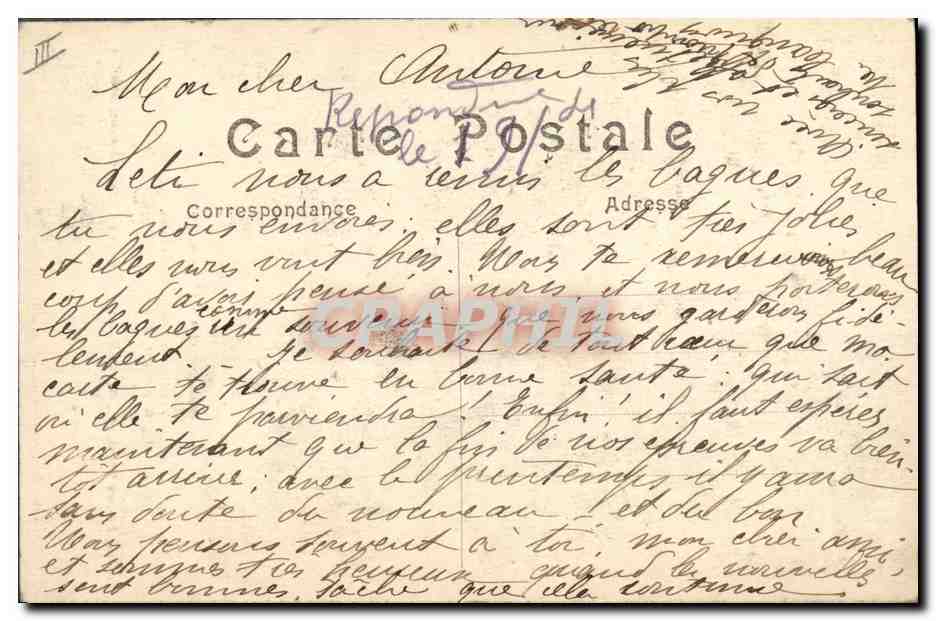 III
Mon cher Antoine
Répondre
le 19/
Carte Postale
Leti nous a remis les bagues que
Correspondance
Adresse
tu nous envoies. elles sont très jolies
et elles nous vont bien. Nous te remercions beau
coup d'avoir pensé à nous et nous porterons
les bagues comme un souvenir que nous garderons fidè-
lement. Je souhaite de tout cœur que ma
carte te trouve en bonne santé; qui sait
où elle te parviendra! Enfin! il faut espérer
maintenant que la fin de nos épreuves va bien-
tôt arriver; avec le printemps il y aura
sans doute du nouveau! et du bon
Nous pensons souvent à toi, mon cher ami,
et sommes très heureux quand les nouvelles
sont bonnes. Sache que cela continue
CRAPHIL